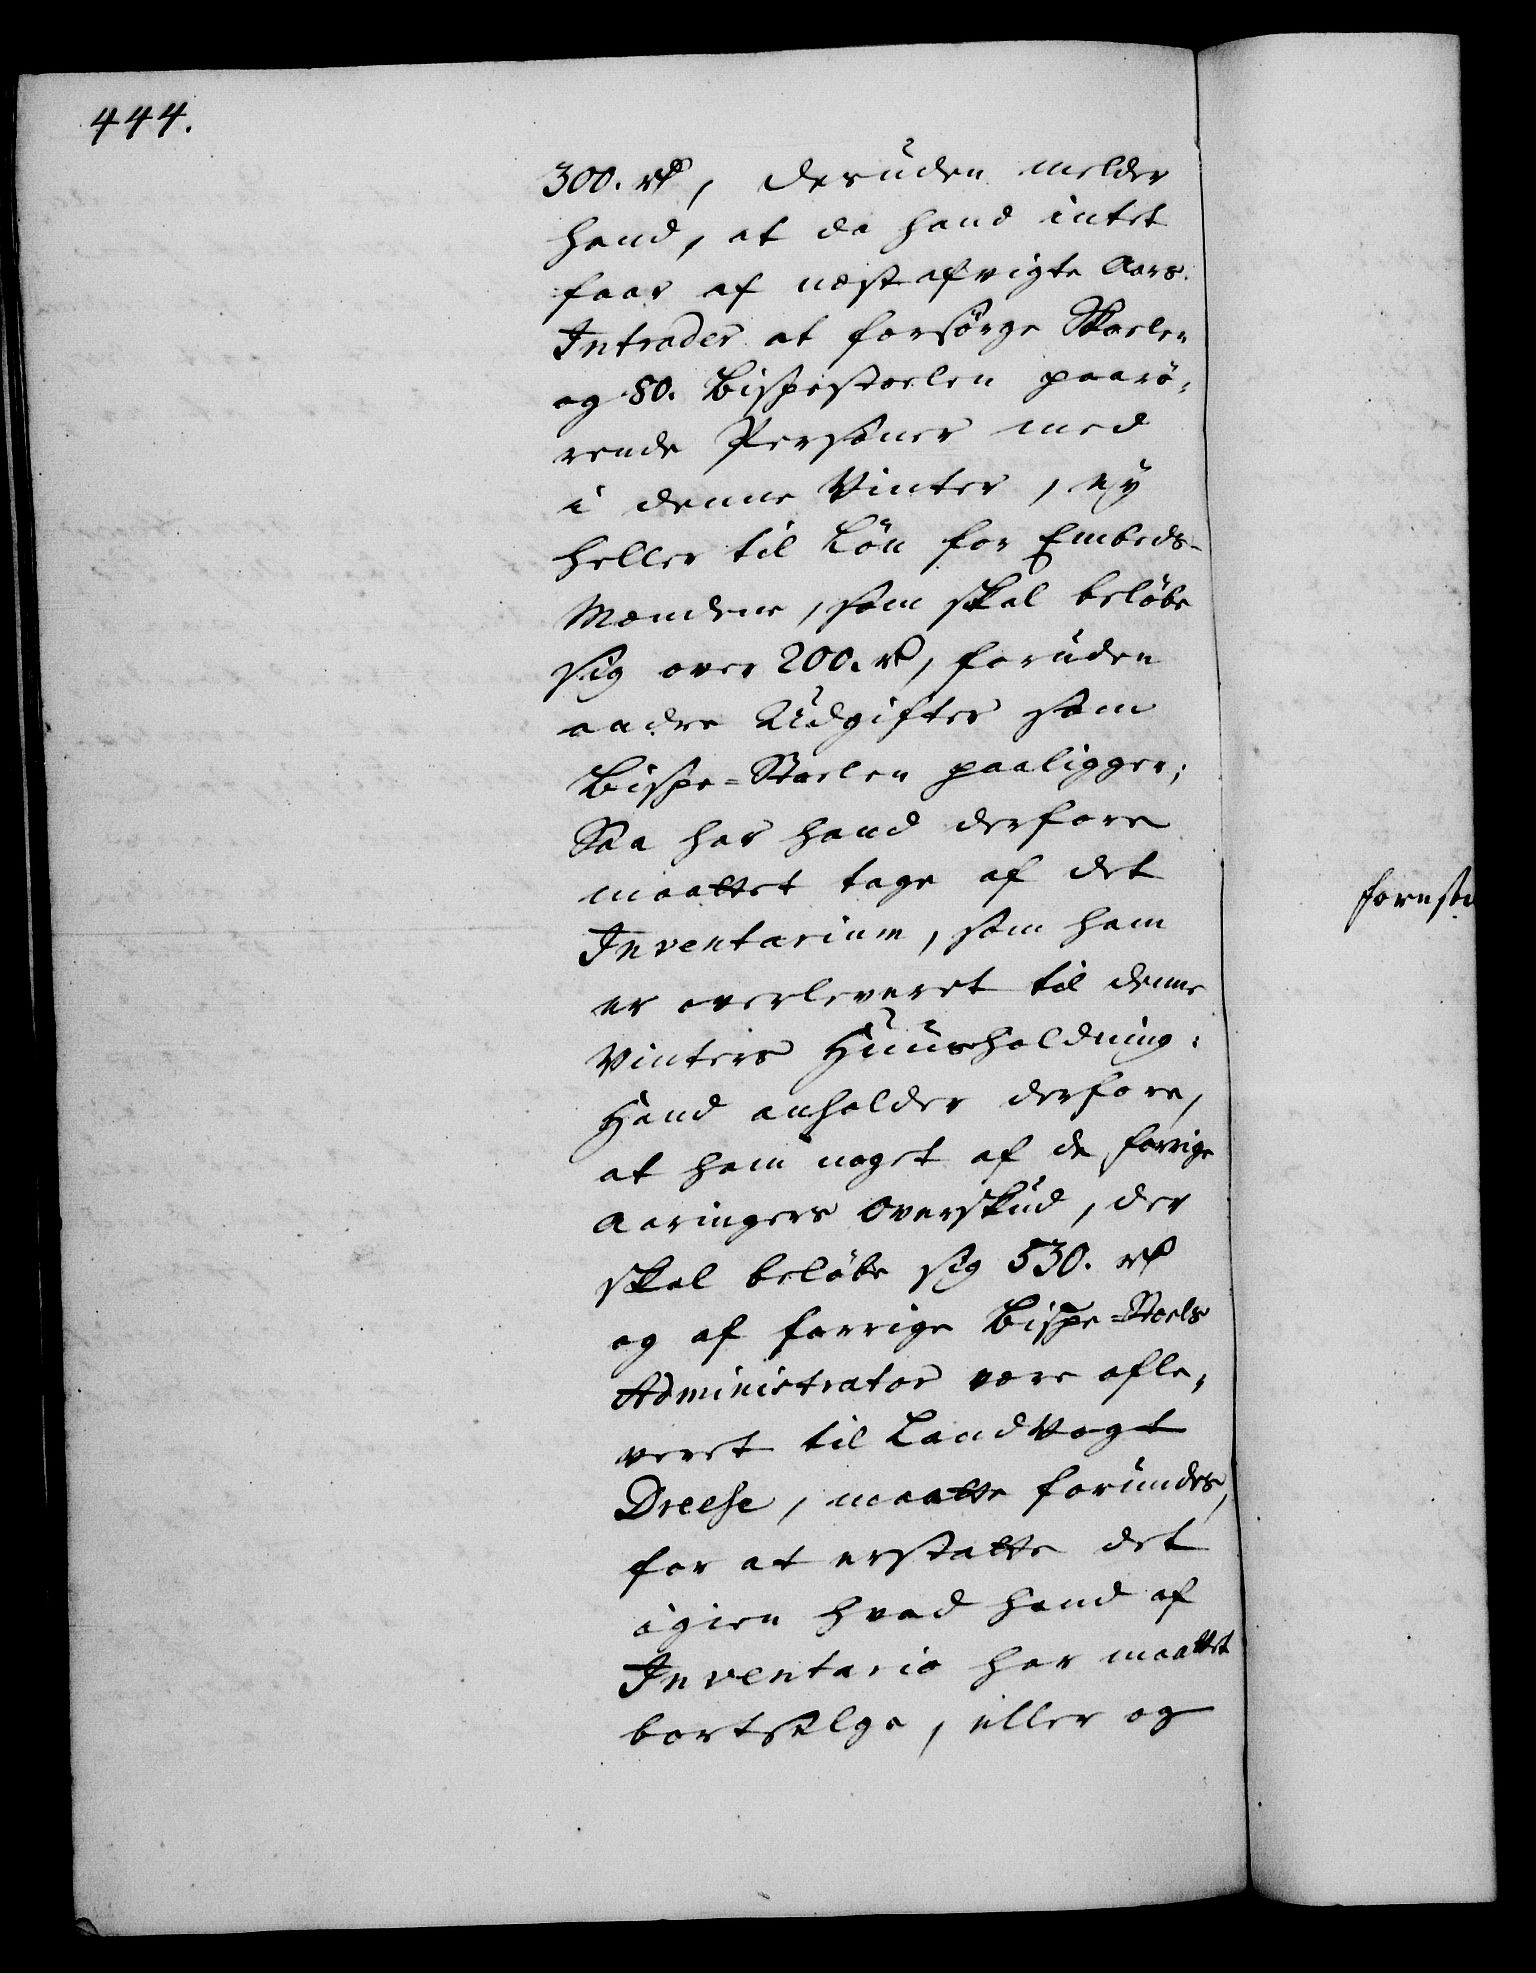 444.
300. rd, desuden melder
hand, at da hand intet
faar af nestafvigte Aars
Intrader at forsörge Skoelen
og 80. Bispestoelen paarö,
rende Personer med
i denne Vinter, ey
heller til Lön for Embeds-
Mændene, som skal belöbe
sig over 200. rd, foruden
andre Udgifter som
Bispe-Stoelen paaligger;
Saa har hand derfore
maattet tage af det
Inventarium, som ham
er overleveret til denne
Vinters Huusholdning.
Hand anholder derfore,
at ham noget af de forrige
Aaringers Overskud, der
skal belöbe sig 530. rd
og af forrige Bispe-Stoels
Administrator være afle,
veret til LandVogt
Dreese, maatte forundes,
for at erstatte det
igien hvad hand af
Inventario har maattet
bortselge, eller og